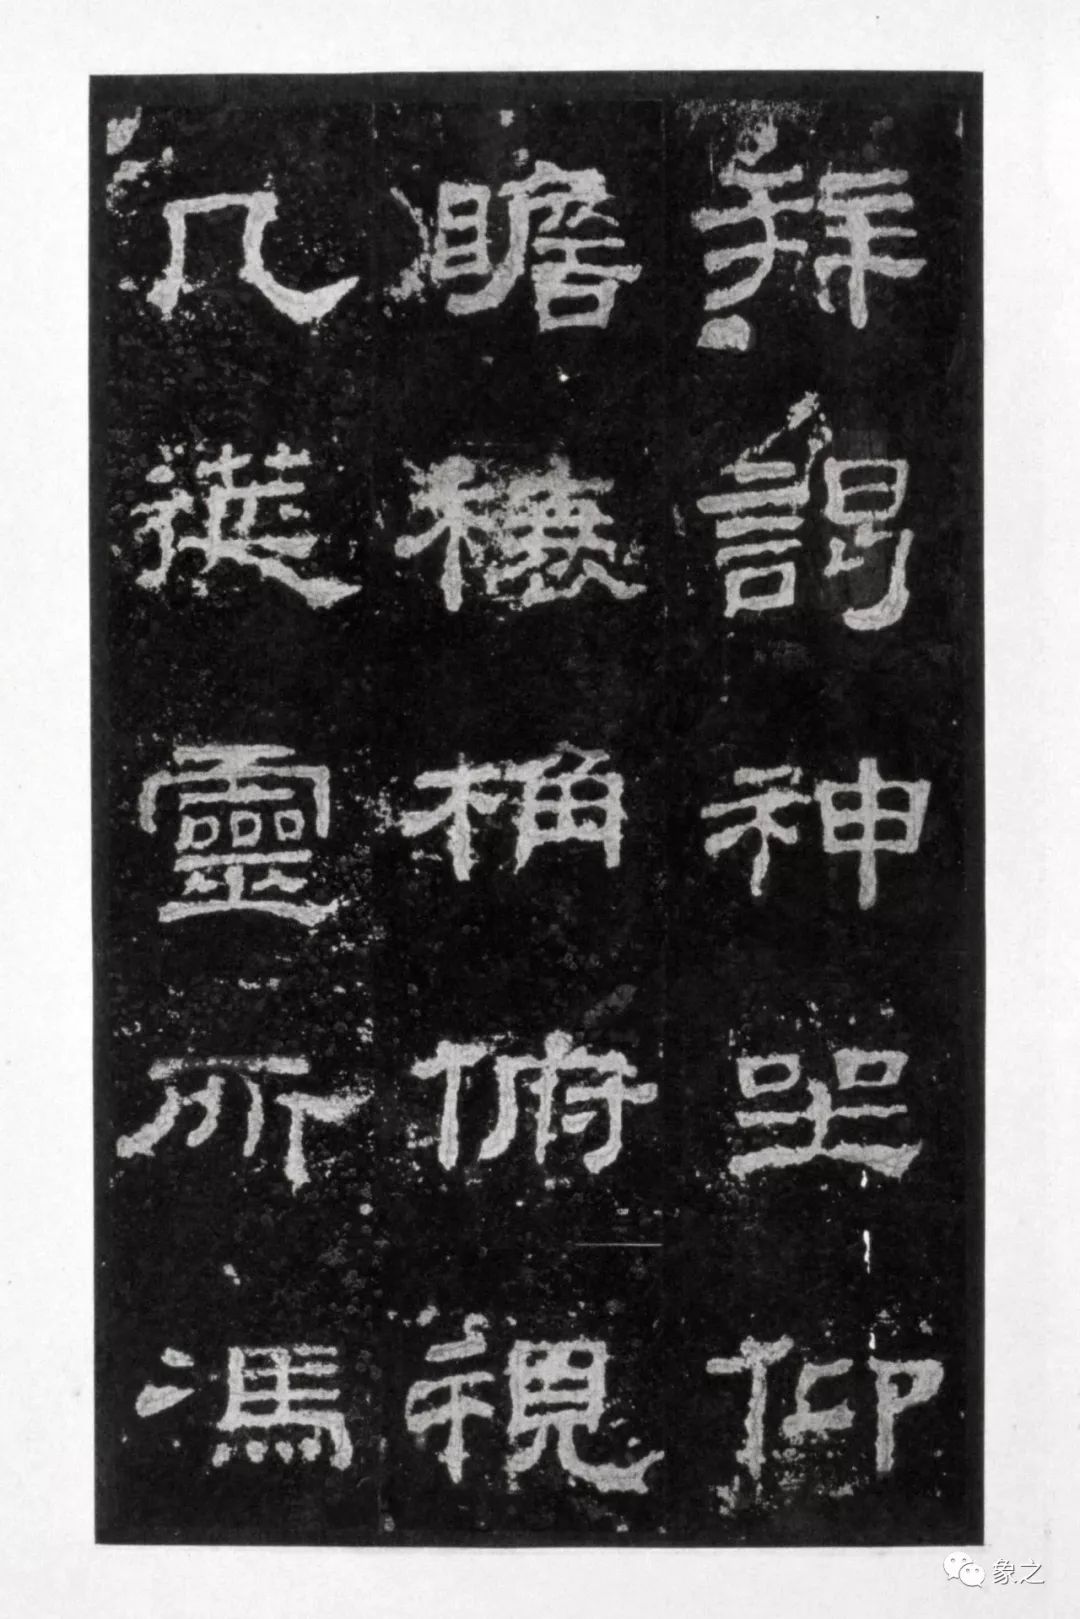 拜謁神坐仰
瞻榱桷俯視
几筵靈所馮
象之